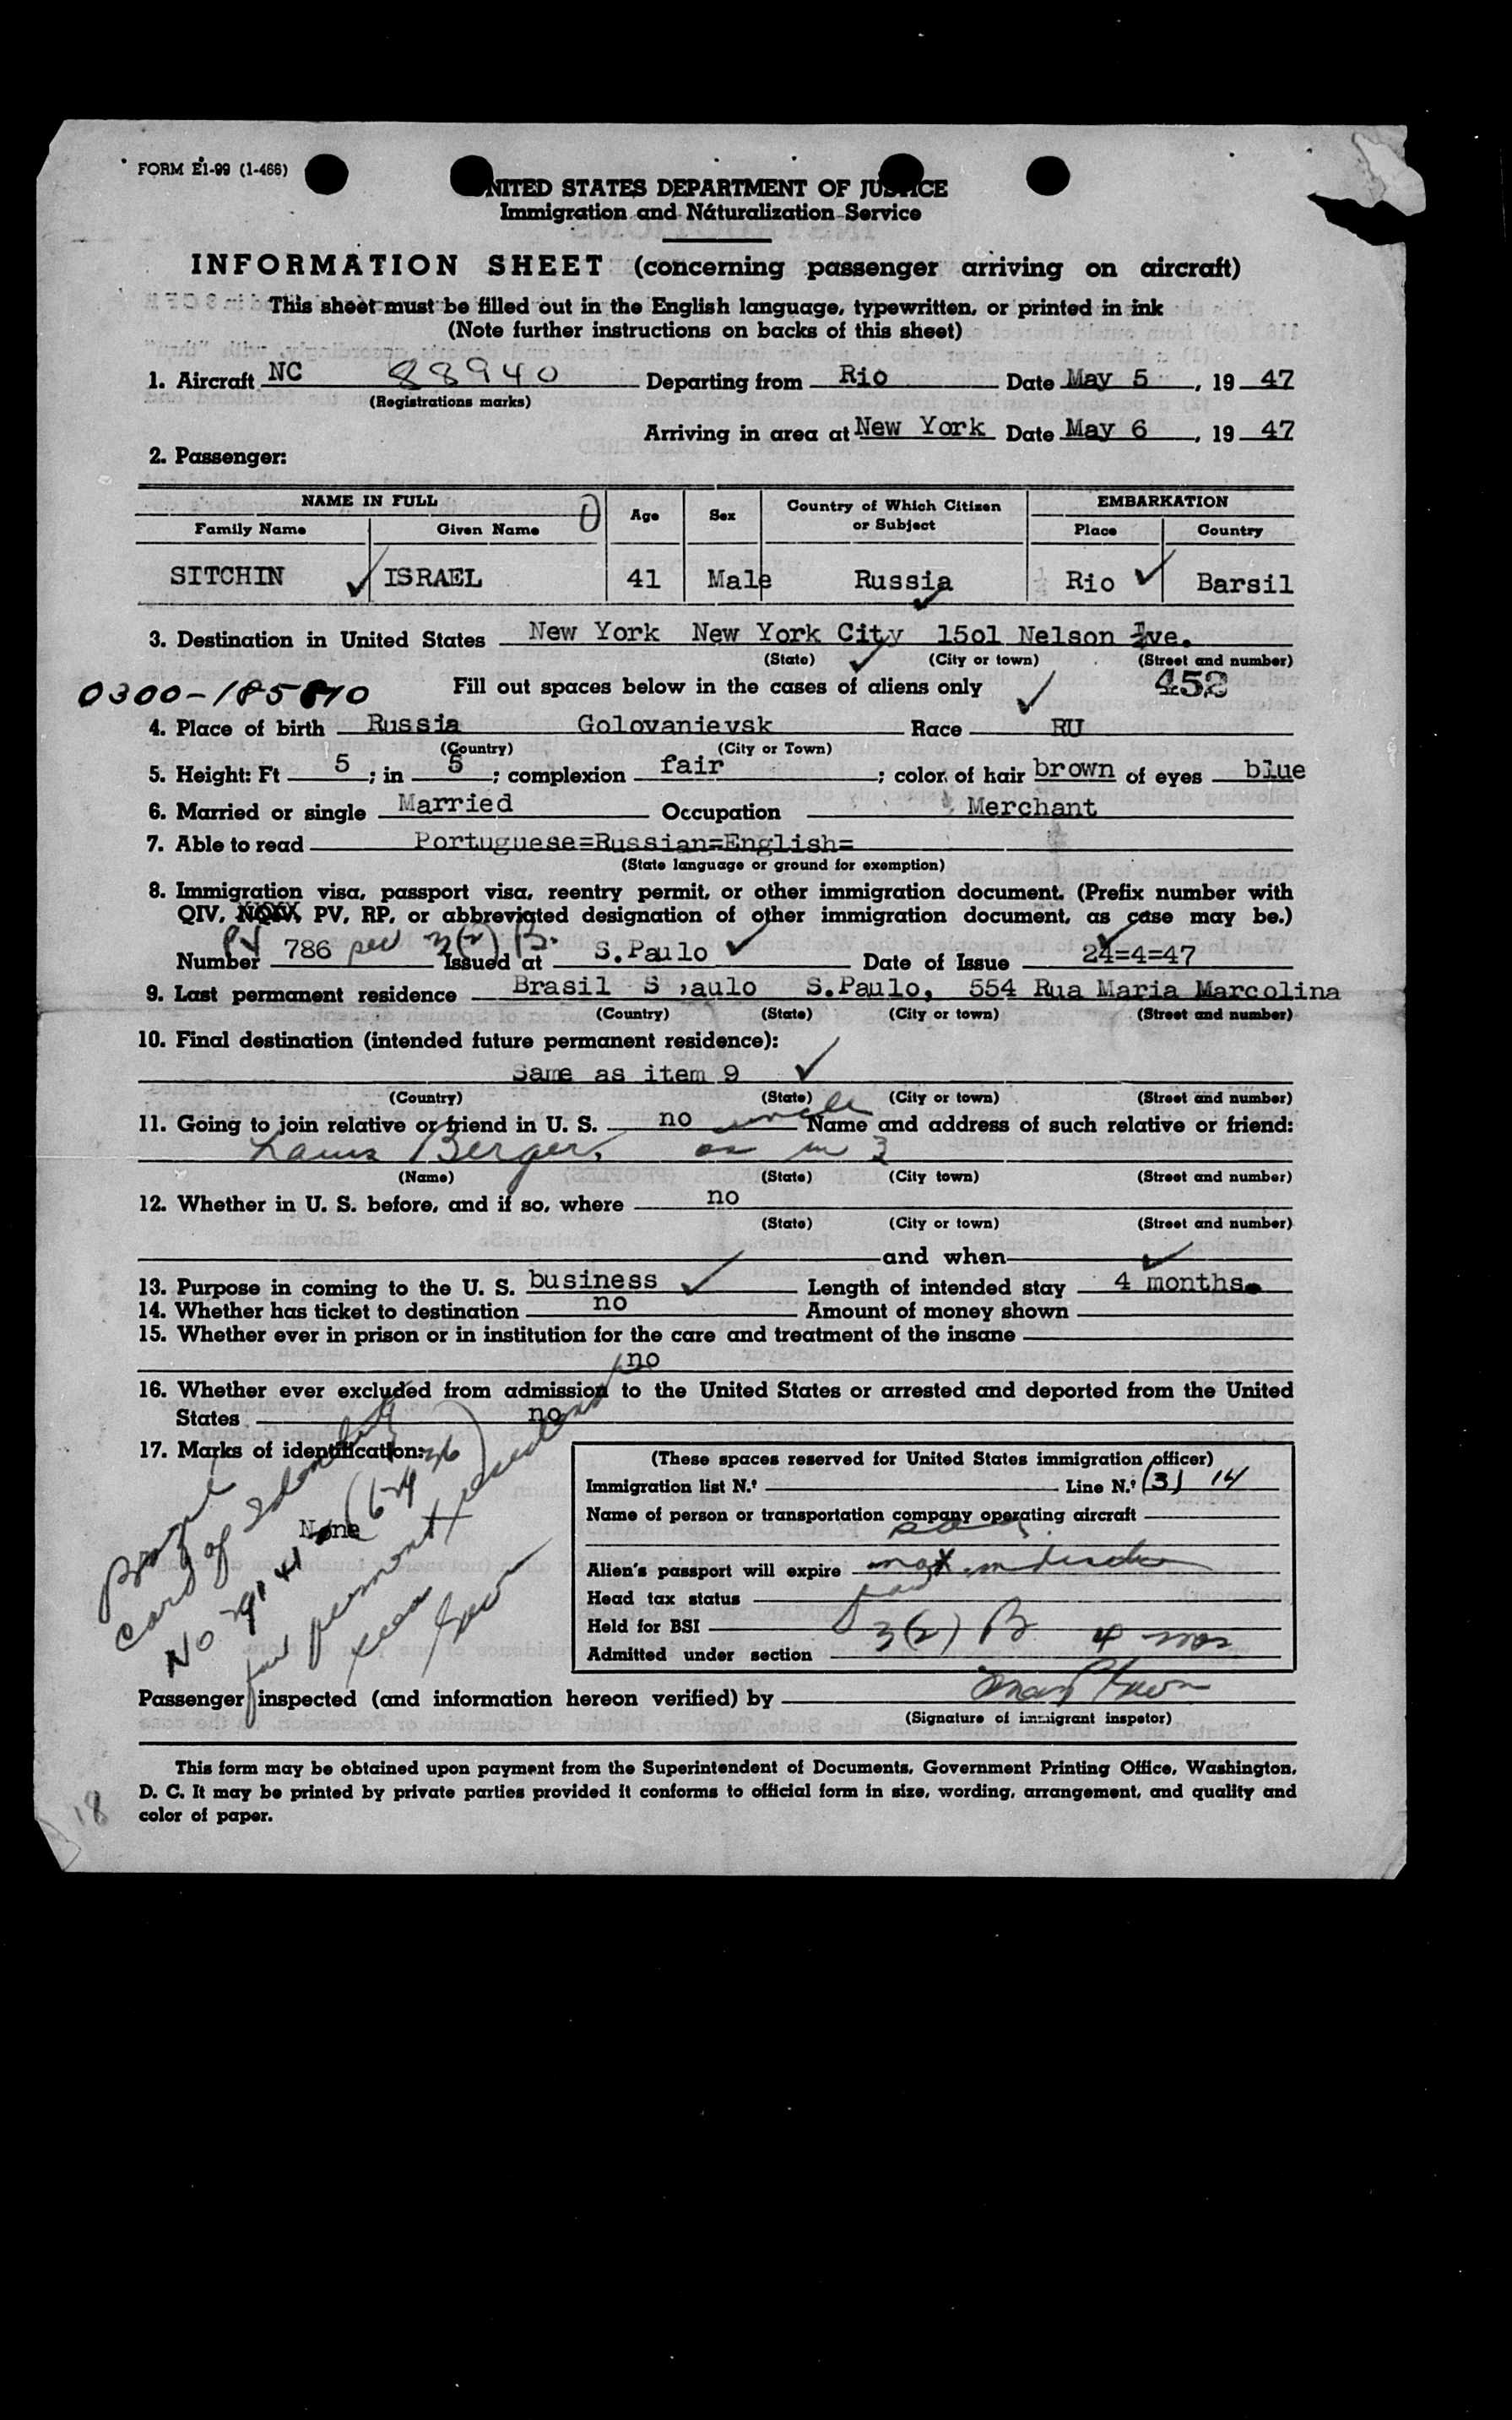 FORM E1-99 (1-466)
UNITED STATES DEPARTMENT OF JUSTICE
Immigration and Naturalization Service
INFORMATION SHEET (concerning passenger arriving on aircraft)
This sheet must be filled out in the English language, typewritten, or printed in ink
(Note further instructions on backs of this sheet)
1. Aircraft NC 88940 Departing from Rio Date May 5, 19 47
(Registrations marks)
Arriving in area at New York Date May 6, 19 47
2. Passenger:
NAME IN FULL Age Sex Country of Which Citizen or Subject EMBARKATION
Family Name Given Name Place Country
SITCHIN ISRAEL 41 Male Russia Rio Barsil
3. Destination in United States New York New York City 15o1 Nelson Ave.
(State) (City or town) (Street and number)
0300-185810 Fill out spaces below in the cases of aliens only 452
4. Place of birth Russia Golovanievsk Race RU
(Country) (City or Town)
5. Height: Ft 5; in 5; complexion fair; color of hair brown of eyes blue
6. Married or single Married Occupation Merchant
7. Able to read Portuguese=Russian=English=
(State language or ground for exemption)
8. Immigration visa, passport visa, reentry permit, or other immigration document. (Prefix number with
QIV, NQIV, PV, RP, or abbreviated designation of other immigration document, as case may be.)
PV 786 sec 3(2) B.
Number Issued at S.Paulo Date of Issue 24=4=47
9. Last permanent residence Brasil S aulo S.Paulo, 554 Rua Maria Marcolina
(Country) (State) (City or town) (Street and number)
10. Final destination (intended future permanent residence):
Same as item 9
(Country) (State) (City or town) (Street and number)
11. Going to join relative or friend in U. S. no uncle Name and address of such relative or friend:
Berger, as in 3
(Name) (State) (City town) (Street and number)
12. Whether in U. S. before, and if so, where no
(State) (City or town) (Street and number)
and when
13. Purpose in coming to the U. S. business Length of intended stay 4 months.
14. Whether has ticket to destination no Amount of money shown
15. Whether ever in prison or in institution for the care and treatment of the insane
no
16. Whether ever excluded from admission to the United States or arrested and deported from the United
States no
17. Marks of identification:
None
Brazil
card of Identity
for permanent residence
(These spaces reserved for United States immigration officer)
Immigration list N.º Line N.º (3) 14
Name of person or transportation company operating aircraft
Alien's passport will expire
Head tax status
Held for BSI
Admitted under section 3(2) B 4 mos
Passenger inspected (and information hereon verified) by
(Signature of immigrant inspetor)
This form may be obtained upon payment from the Superintendent of Documents, Government Printing Office, Washington,
D. C. It may be printed by private parties provided it conforms to official form in size, wording, arrangement, and quality and
color of paper.
18